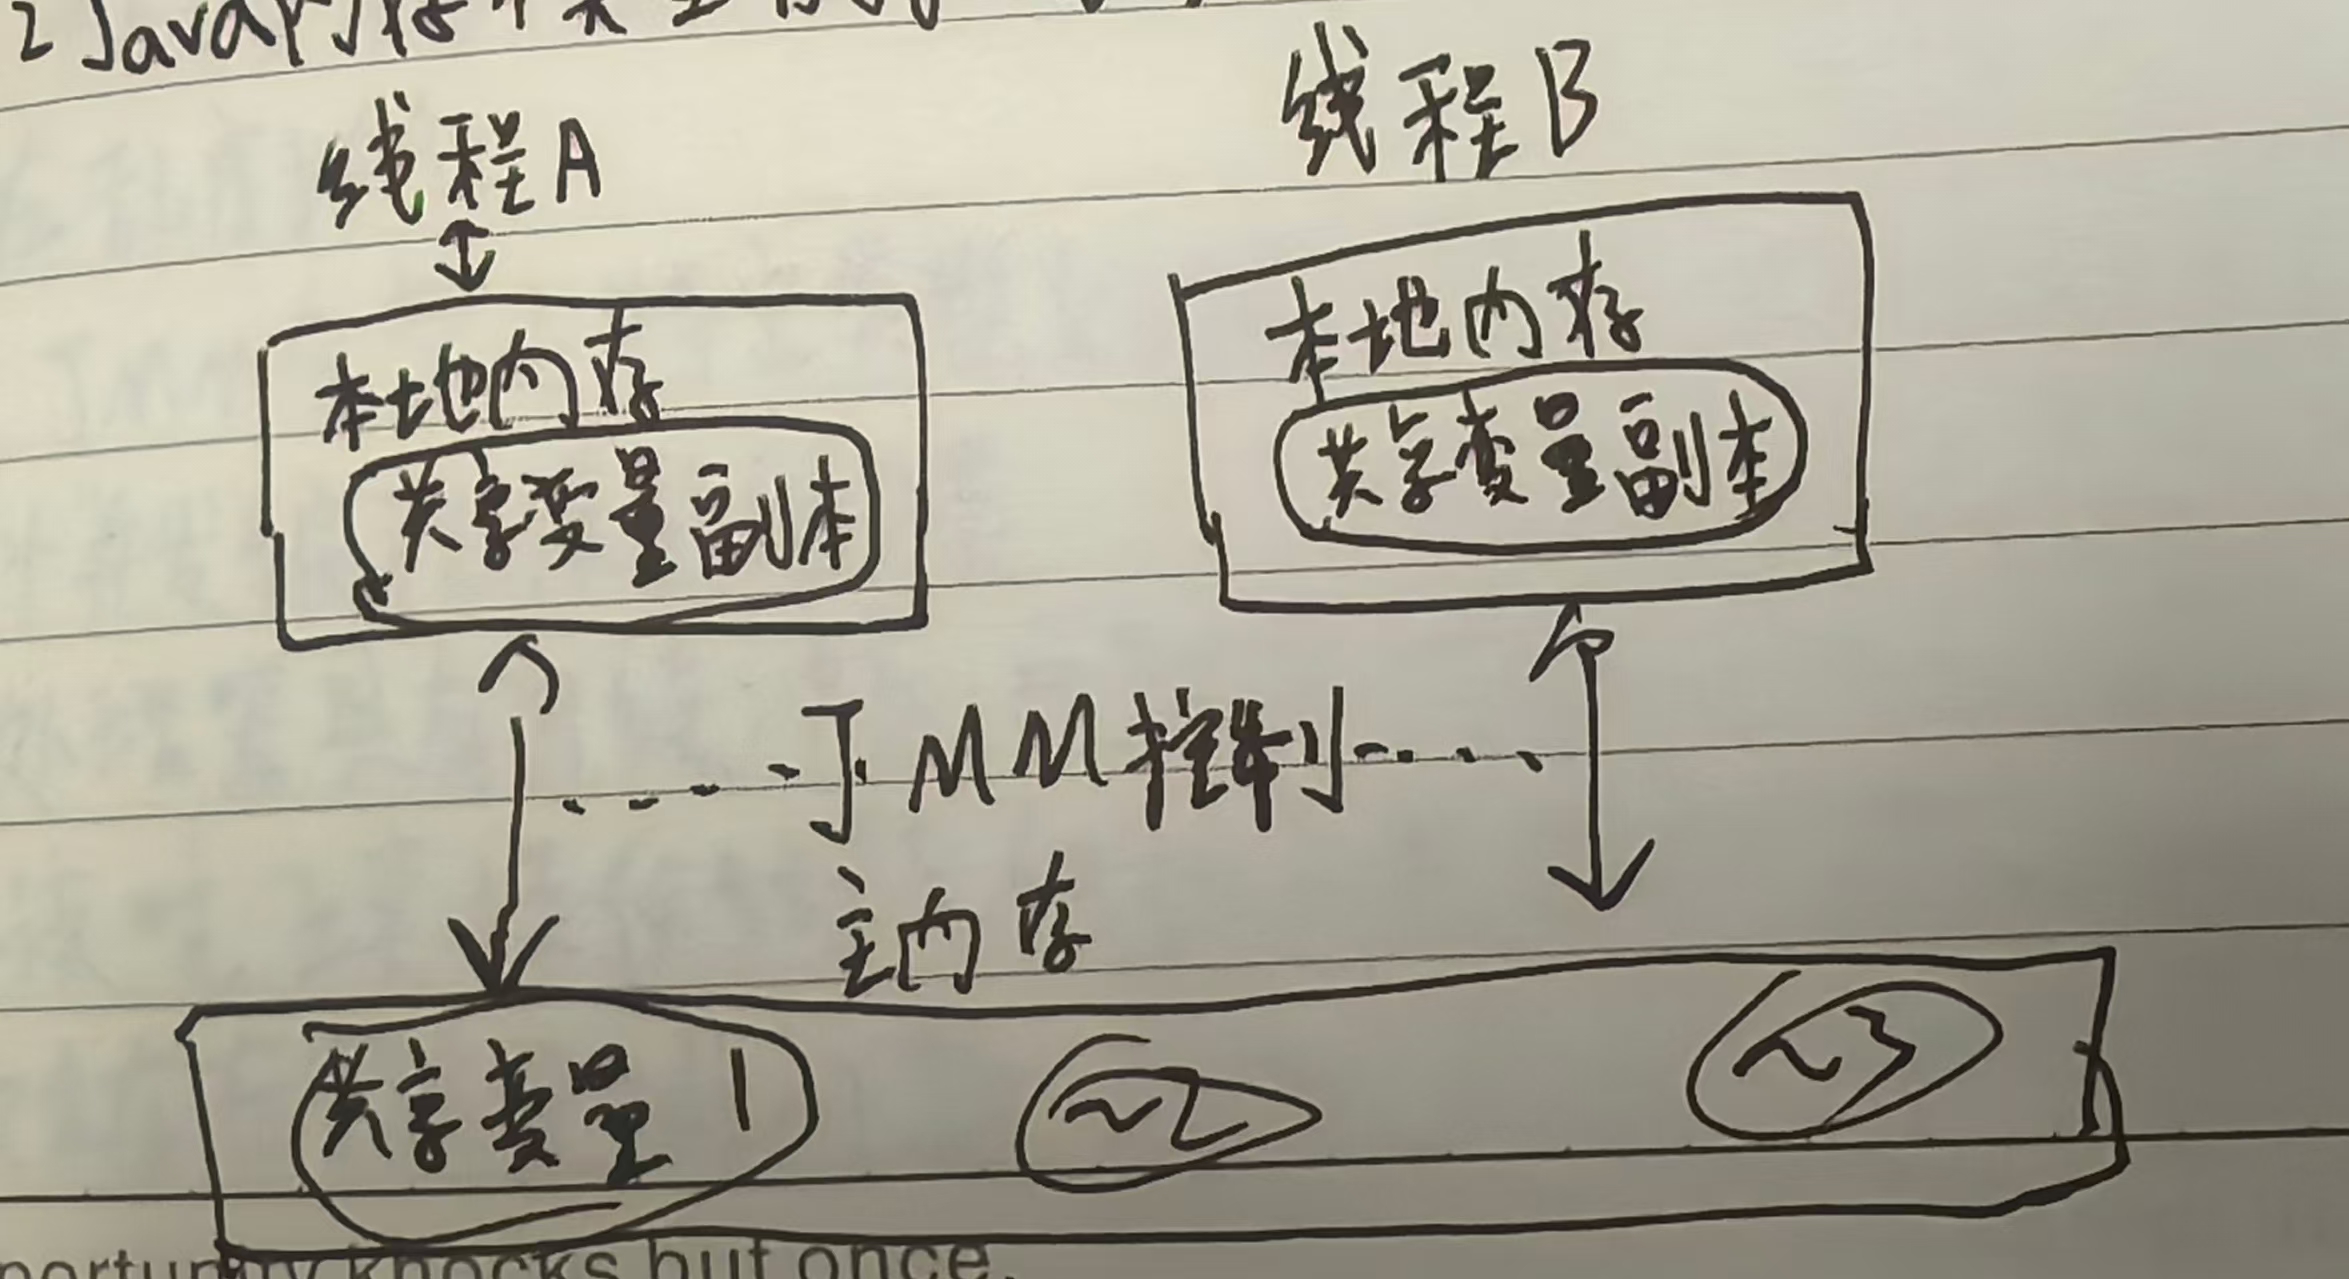 2 Java内存模型
线程A
线程B
本地内存
共享变量副本
本地内存
共享变量副本
JMM控制
主内存
共享变量1
~2
~3
portunity knocks but once.